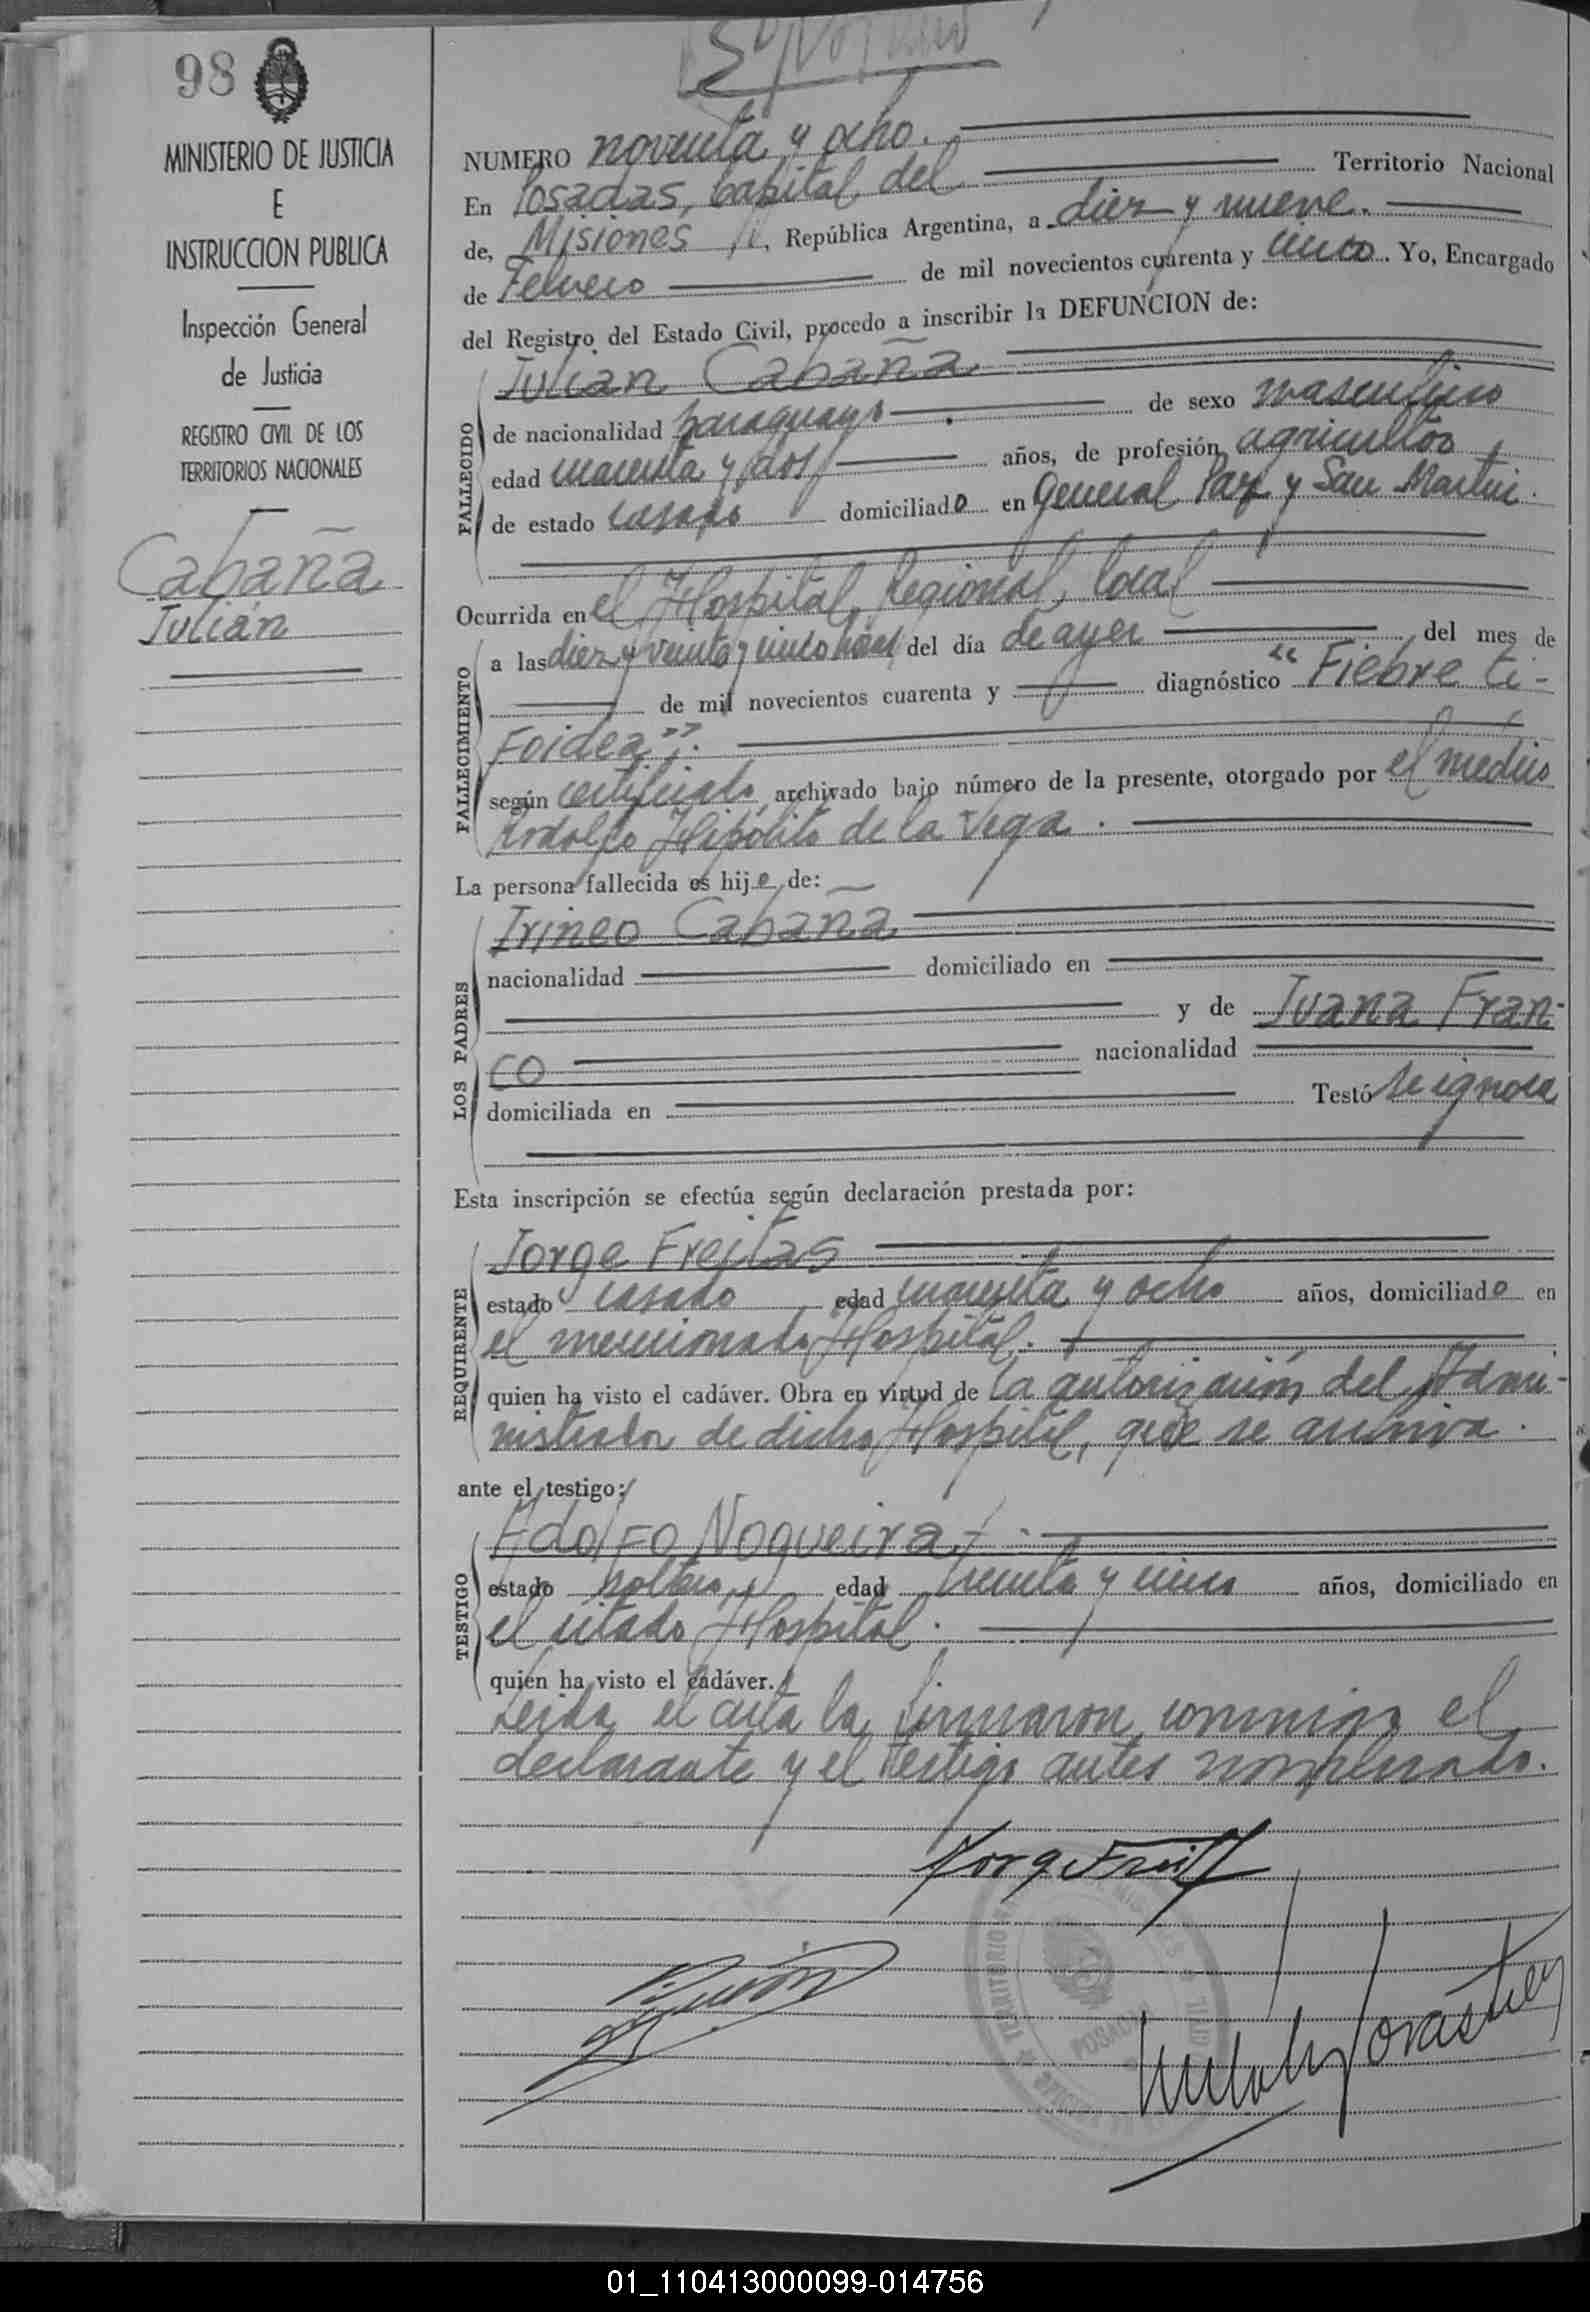 98
MINISTERIO DE JUSTICIA
E
INSTRUCCION PUBLICA
Inspección General
de Justicia
REGISTRO CIVIL DE LOS
TERRITORIOS NACIONALES
Cabaña
Julián
NUMERO noventa y ocho.
En Posadas, Capital del Territorio Nacional
de, Misiones, República Argentina, a diez y nueve.
de Febrero de mil novecientos cuarenta y cinco. Yo, Encargado
del Registro del Estado Civil, procedo a inscribir la DEFUNCION de:
FALLECIDO
Julian Cabaña
de nacionalidad paraguayo de sexo masculino
edad cuarenta y dos años, de profesión agricultor,
de estado casado domiciliado en General Paz y San Martin.
Ocurrida en el Hospital Regional, local
FALLECIMIENTO
a las diez y veinte y cinco horas del día de ayer del mes de
de mil novecientos cuarenta y diagnóstico "Fiebre ti-
Foidea".
según certificado archivado bajo número de la presente, otorgado por el médico
Ardolfo Hipólito de la Vega.
La persona fallecida es hijo de:
LOS PADRES
Irineo Cabaña
nacionalidad domiciliado en
y de Juana Fran-
co nacionalidad
domiciliada en Testó se ignora
Esta inscripción se efectúa según declaración prestada por:
REQUIRENTE
Jorge Freitas
estado casado edad cuarenta y ocho años, domiciliado en
el mencionado Hospital.
quien ha visto el cadáver. Obra en virtud de la autorización del Admi-
nistrador de dicho Hospital, que se archiva.
ante el testigo:
TESTIGO
Adolfo Nogueira
estado soltero edad treinta y cinco años, domiciliado en
el citado Hospital.
quien ha visto el cadáver.
Leida el acta la firmaron conmigo el
declarante y el testigo antes nombrado.
Jorge Freitas
TERRITORIO MISIONES
POSADAS
01_110413000099-014756